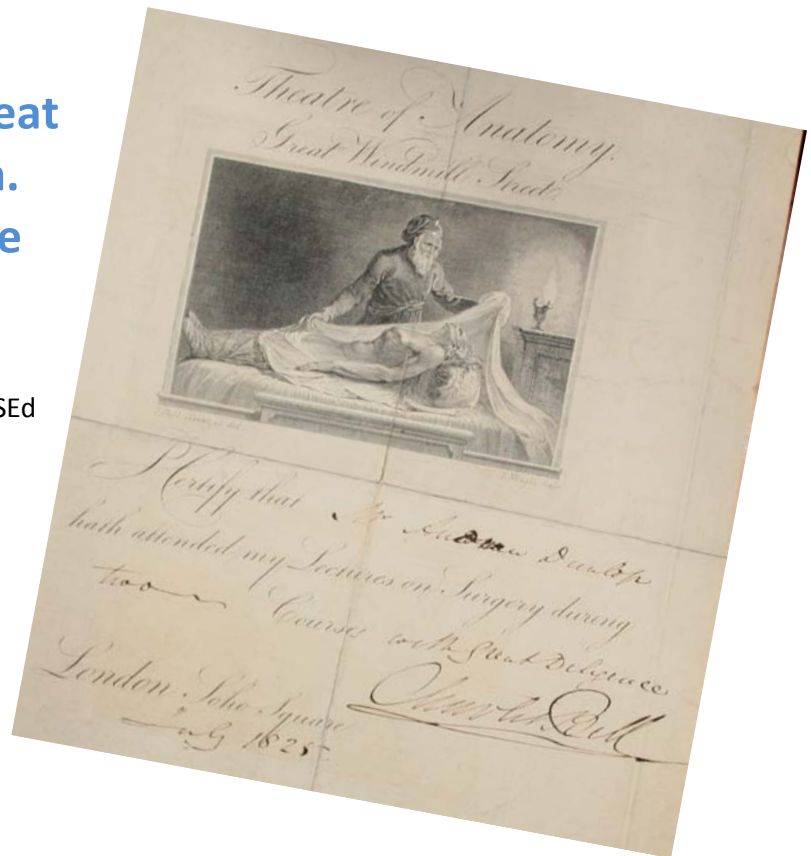 eat
.
e
SEd
Theatre of Anatomy.
Great Windmill Street
I Certify that Mr Andrew Dunlop
hath attended my Lectures on Surgery during
two Courses with Great Diligence
Charles Bell
London Soho Square
July 1825